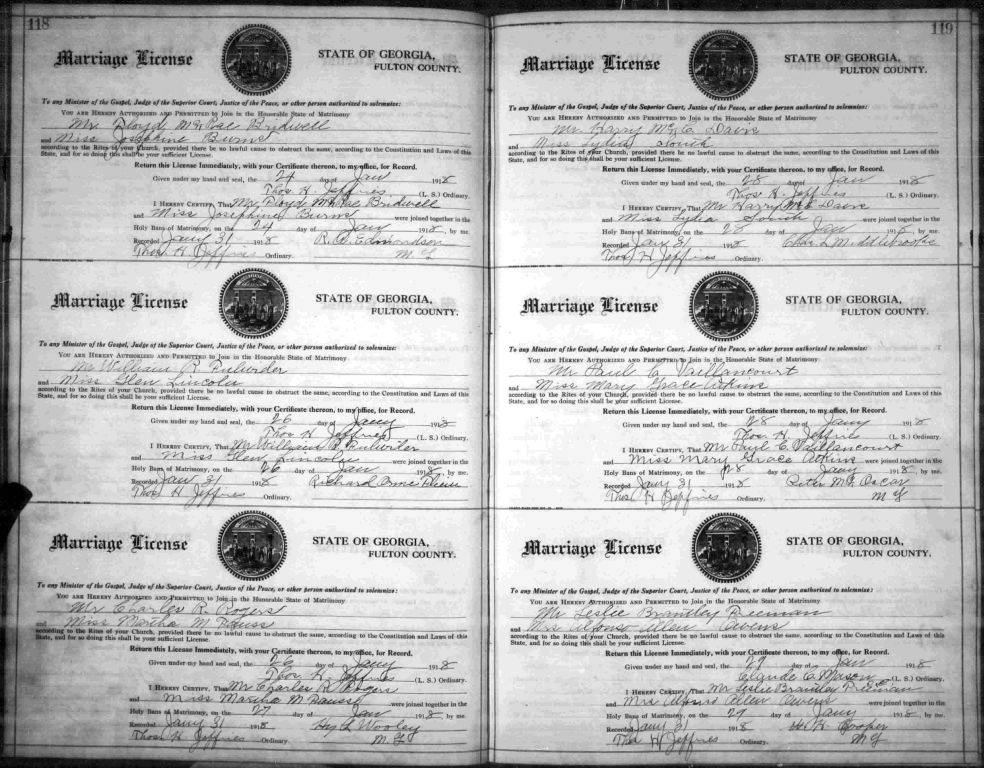 118
Marriage License
STATE OF GEORGIA,
FULTON COUNTY.
To any Minister of the Gospel, Judge of the Superior Court, Justice of the Peace, or other person authorized to solemnize:
YOU ARE HEREBY AUTHORIZED AND PERMITTED to Join in the Honorable State of Matrimony
Mr Floyd McRae Bridwell
and Miss Josephine Burns
according to the Rites of your Church, provided there be no lawful cause to obstruct the same, according to the Constitution and Laws of this
State, and for so doing this shall be your sufficient License.
Return this License Immediately, with your Certificate thereon, to my office, for Record.
Given under my hand and seal, the 24 day of Jan 1918
Thos. H. Jeffries (L. S.) Ordinary.
I HEREBY CERTIFY, That Mr Floyd McRae Bridwell
and Miss Josephine Burns were joined together in the
Holy Bans of Matrimony, on the 24 day of Jany 1918, by me.
Recorded Jany 31 1918 R. Edmondson
Thos H Jeffries Ordinary. M G
Marriage License
STATE OF GEORGIA,
FULTON COUNTY.
To any Minister of the Gospel, Judge of the Superior Court, Justice of the Peace, or other person authorized to solemnize:
YOU ARE HEREBY AUTHORIZED AND PERMITTED to Join in the Honorable State of Matrimony
Mr William R Fulwider
and Miss Glen Lincoln
according to the Rites of your Church, provided there be no lawful cause to obstruct the same, according to the Constitution and Laws of this
State, and for so doing this shall be your sufficient License.
Return this License Immediately, with your Certificate thereon, to my office, for Record.
Given under my hand and seal, the 26 day of Jany 1918
Thos H Jeffries (L. S.) Ordinary.
I HEREBY CERTIFY, That Mr William R Fulwider
and Miss Glen Lincoln were joined together in the
Holy Bans of Matrimony, on the 26 day of Jan 1918, by me.
Recorded Jan 31 1918 Richard Orme
Thos H Jeffries Ordinary.
Marriage License
STATE OF GEORGIA,
FULTON COUNTY.
To any Minister of the Gospel, Judge of the Superior Court, Justice of the Peace, or other person authorized to solemnize:
YOU ARE HEREBY AUTHORIZED AND PERMITTED to Join in the Honorable State of Matrimony
Mr Charles R. Rogers
and Miss Martha M
according to the Rites of your Church, provided there be no lawful cause to obstruct the same, according to the Constitution and Laws of this
State, and for so doing this shall be your sufficient License.
Return this License Immediately, with your Certificate thereon, to my office, for Record.
Given under my hand and seal, the 26 day of Jany 1918
Thos H Jeffries (L. S.) Ordinary.
I HEREBY CERTIFY, That Mr Charles R Rogers
and Miss Martha M were joined together in the
Holy Bans of Matrimony, on the 27 day of Jan 1918, by me.
Recorded Jany 31 1918 Hy L Wooley
Thos H Jeffries Ordinary M. G
119
Marriage License
STATE OF GEORGIA,
FULTON COUNTY.
To any Minister of the Gospel, Judge of the Superior Court, Justice of the Peace, or other person authorized to solemnize:
YOU ARE HEREBY AUTHORIZED AND PERMITTED to Join in the Honorable State of Matrimony
Mr Harry McC Davis
and Miss Lydia
according to the Rites of your Church, provided there be no lawful cause to obstruct the same, according to the Constitution and Laws of this
State, and for so doing this shall be your sufficient License.
Return this License Immediately, with your Certificate thereon, to my office, for Record.
Given under my hand and seal, the 28 day of Jan 1918
Thos H. Jeffries (L. S.) Ordinary.
I HEREBY CERTIFY, That Mr Harry McC Davis
and Miss Lydia were joined together in the
Holy Bans of Matrimony, on the 28 day of Jan 1918, by me.
Recorded Jany 31 1918 Chas L Middlebrooks
Thos H Jeffries Ordinary.
Marriage License
STATE OF GEORGIA,
FULTON COUNTY.
To any Minister of the Gospel, Judge of the Superior Court, Justice of the Peace, or other person authorized to solemnize:
YOU ARE HEREBY AUTHORIZED AND PERMITTED to Join in the Honorable State of Matrimony
Mr Paul C Vaillancourt
and Miss Mary Grace Atkins
according to the Rites of your Church, provided there be no lawful cause to obstruct the same, according to the Constitution and Laws of this
State, and for so doing this shall be your sufficient License.
Return this License Immediately, with your Certificate thereon, to my office, for Record.
Given under my hand and seal, the 28 day of Jany 1918
Thos. H Jeffries (L. S.) Ordinary.
I HEREBY CERTIFY, That Mr Paul C Vaillancourt
and Miss Mary Grace Atkins were joined together in the
Holy Bans of Matrimony, on the 28 day of Jany 1918, by me.
Recorded Jany 31 1918 Peter Mc Oscar
Thos H Jeffries Ordinary. M G
Marriage License
STATE OF GEORGIA,
FULTON COUNTY.
To any Minister of the Gospel, Judge of the Superior Court, Justice of the Peace, or other person authorized to solemnize:
YOU ARE HEREBY AUTHORIZED AND PERMITTED to Join in the Honorable State of Matrimony
Mr Leslie Brantley
and Mrs Allen Owens
according to the Rites of your Church, provided there be no lawful cause to obstruct the same, according to the Constitution and Laws of this
State, and for so doing this shall be your sufficient License.
Return this License Immediately, with your Certificate thereon, to my office, for Record.
Given under my hand and seal, the 29 day of Jan 1918
Claude C Mason (L. S.) Ordinary.
I HEREBY CERTIFY, That Mr Leslie Brantley
and Mrs Allen Owens were joined together in the
Holy Bans of Matrimony, on the 29 day of Jany 1918, by me.
Recorded Jany 31 1918 Cooper
Thos H Jeffries Ordinary. M G